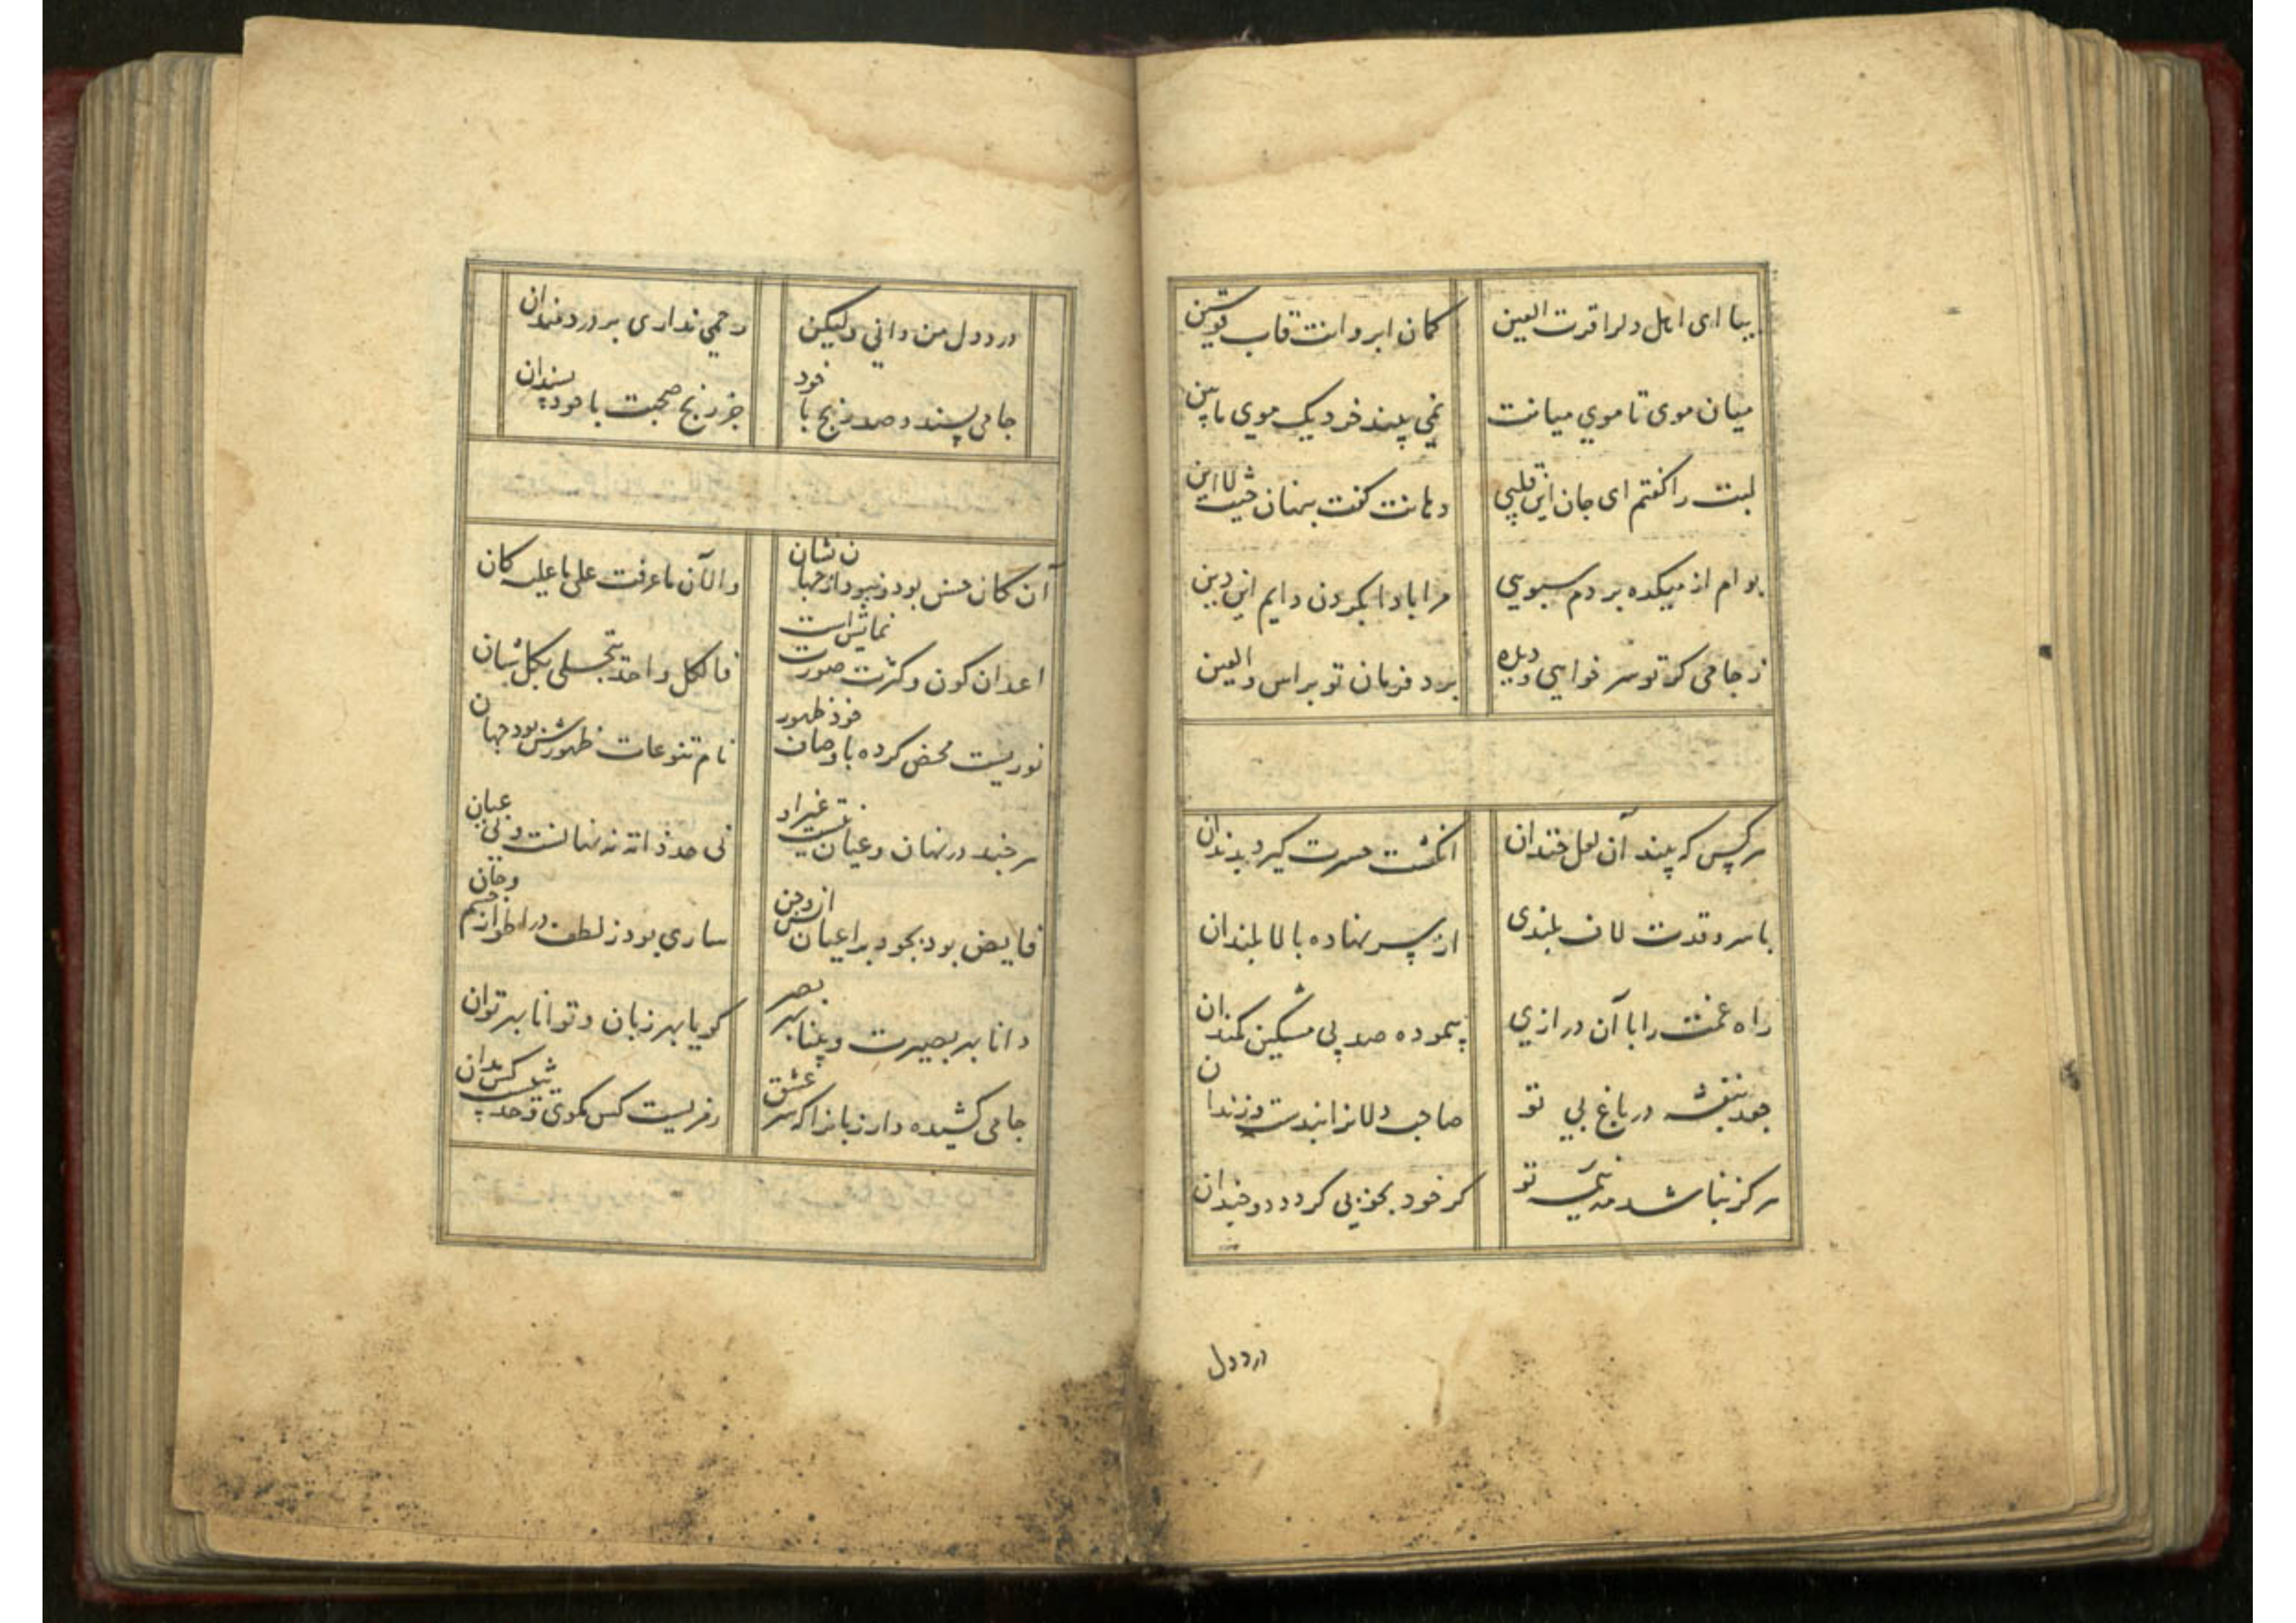 بیا ای اهل دل را قرت العین
کمان ابروانت قاب قوسین
میان موی تا موی میانت
نمی بیند خرد یک موی مابین
لبت را کفتم ای جان این قلبی
دهانت کفت پنهان این
بوام از میکده بردم سبویی
مرا بادا بکردن دایم این دین
ز جامی کر تو سر خواهی و دیده
برد فرمان تو براس والعین
هر کس که بیند آن لعل خندان
انکشت حسرت کیرد بدندان
با سرو قدت لاف بلندی
از سر نهاده بالا بلندان
راه غمت را با آن درازی
پیموده صد پی مشکین کمندان
جعد بنفشه در باغ بی تو
صاحب دلانرا بندست و زندان
هرکز نباشد مه نیم تو
کر خود بخوبی کردد دو چندان
درد دل
درد دل من دانی ولیکن
رحمی نداری بر دردمندان
جامی پسندد صد رنج با خود
جز رنج صحبت با خود پسندان
آن کان حسن بود و نبود از جهان نشان
والآن ما عرفت علی ما علیه کان
اعدان کون و کثرت صورت نمایش است
فالکل واحد یتجلی بکل شان
نوریست محض کرده باوصاف خود ظهور
نام تنوعات ظهورش بود جهان
هر چند در نهان و عیان نیست غیر او
فی حد ذاته نه نهانست و نی عیان
فایض بود بجود بر اعیان انس و جن
ساری بود ز لطف در اطوار جسم و جان
دانا بهر بصیرت و بینا بهر بصر
کویا بهر زبان و توانا بهر توان
جامی کشیده دار زبانرا که سر عشق
رمزیست کس مکوی و حدیثیست کس مدان